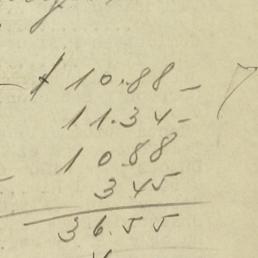 10.88 -
11.34 -
10 88
3 45
36.55